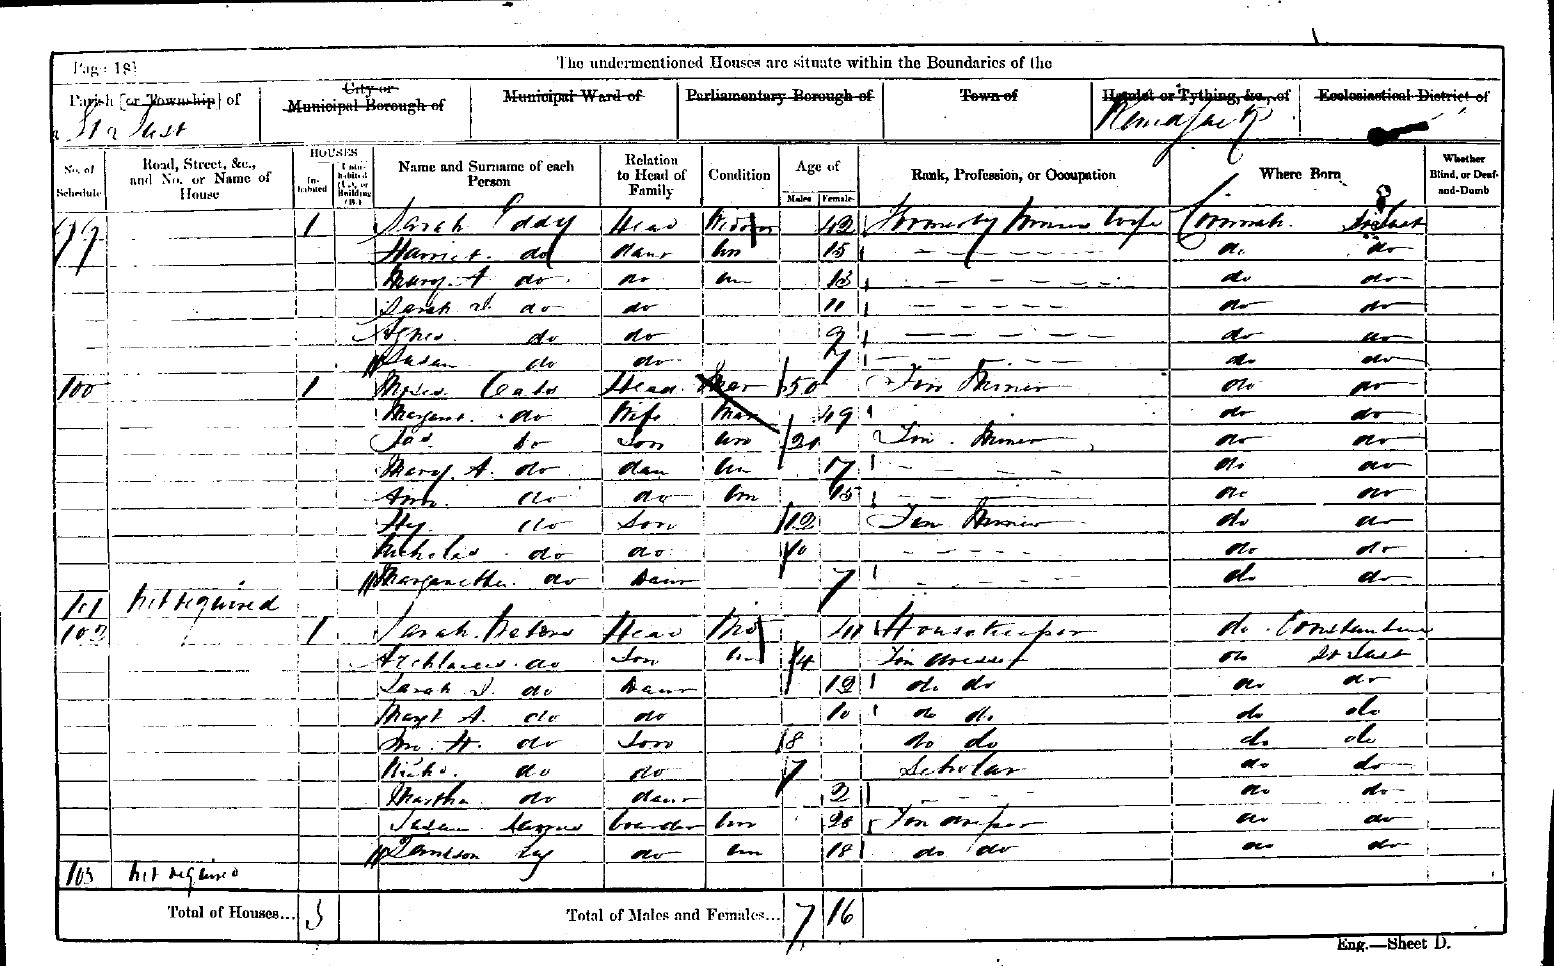 Page 18
The undermentioned Houses are situate within the Boundaries of the
Parish [or Township] of
City or Municipal Borough of
Municipal Ward of
Parliamentary Borough of
Town of
Hamlet or Tything, &c., of
Ecclesiastical District of
St Just
No. of Schedule
Road, Street, &c., and No. or Name of House
HOUSES
Inhabited
Uninhabited (U.), or Building (B.)
Name and Surname of each Person
Relation to Head of Family
Condition
Age of
Males
Females
Rank, Profession, or Occupation
Where Born
Whether Blind, or Deaf-and-Dumb
99 1 Sarah Eddy Head Widow 42 Formerly Miners Wife Cornwall St Just
Harriet do daur Un 15 do do
Mary A do do un 13 do do
Sarah J. do do 11 do do
Agnes do do 9 do do
Susan do do 7 do do
100 1 Moses Oats Head Mar 50 Tin Miner do do
Margaret do Wife Mar 49 do do
Jas. do Son un 20 Tin Miner do do
Mary A. do dau Un do do
Ann do do Un 15 do do
Hy. do Son 12 Tin Miner do do
Nicholas do do 10 do do
Margaretha do Daur 7 do do
101 Not required
102 1 Sarah Head Wid Housekeeper do Constantine
Archlaus do Son Un 14 Tin dresser do St Just
Sarah J. do Daur 12 do do do do
Margt A. do do 10 do do do do
Wm. H. do Son 8 do do do do
Richd. do do 7 Scholar do do
Martha do daur 2 do do
Susan boarder Un 20 Tin dresser do do
do Un 18 do do do do
103 Not required
Total of Houses... 3
Total of Males and Females... 7 16
Eng.—Sheet D.